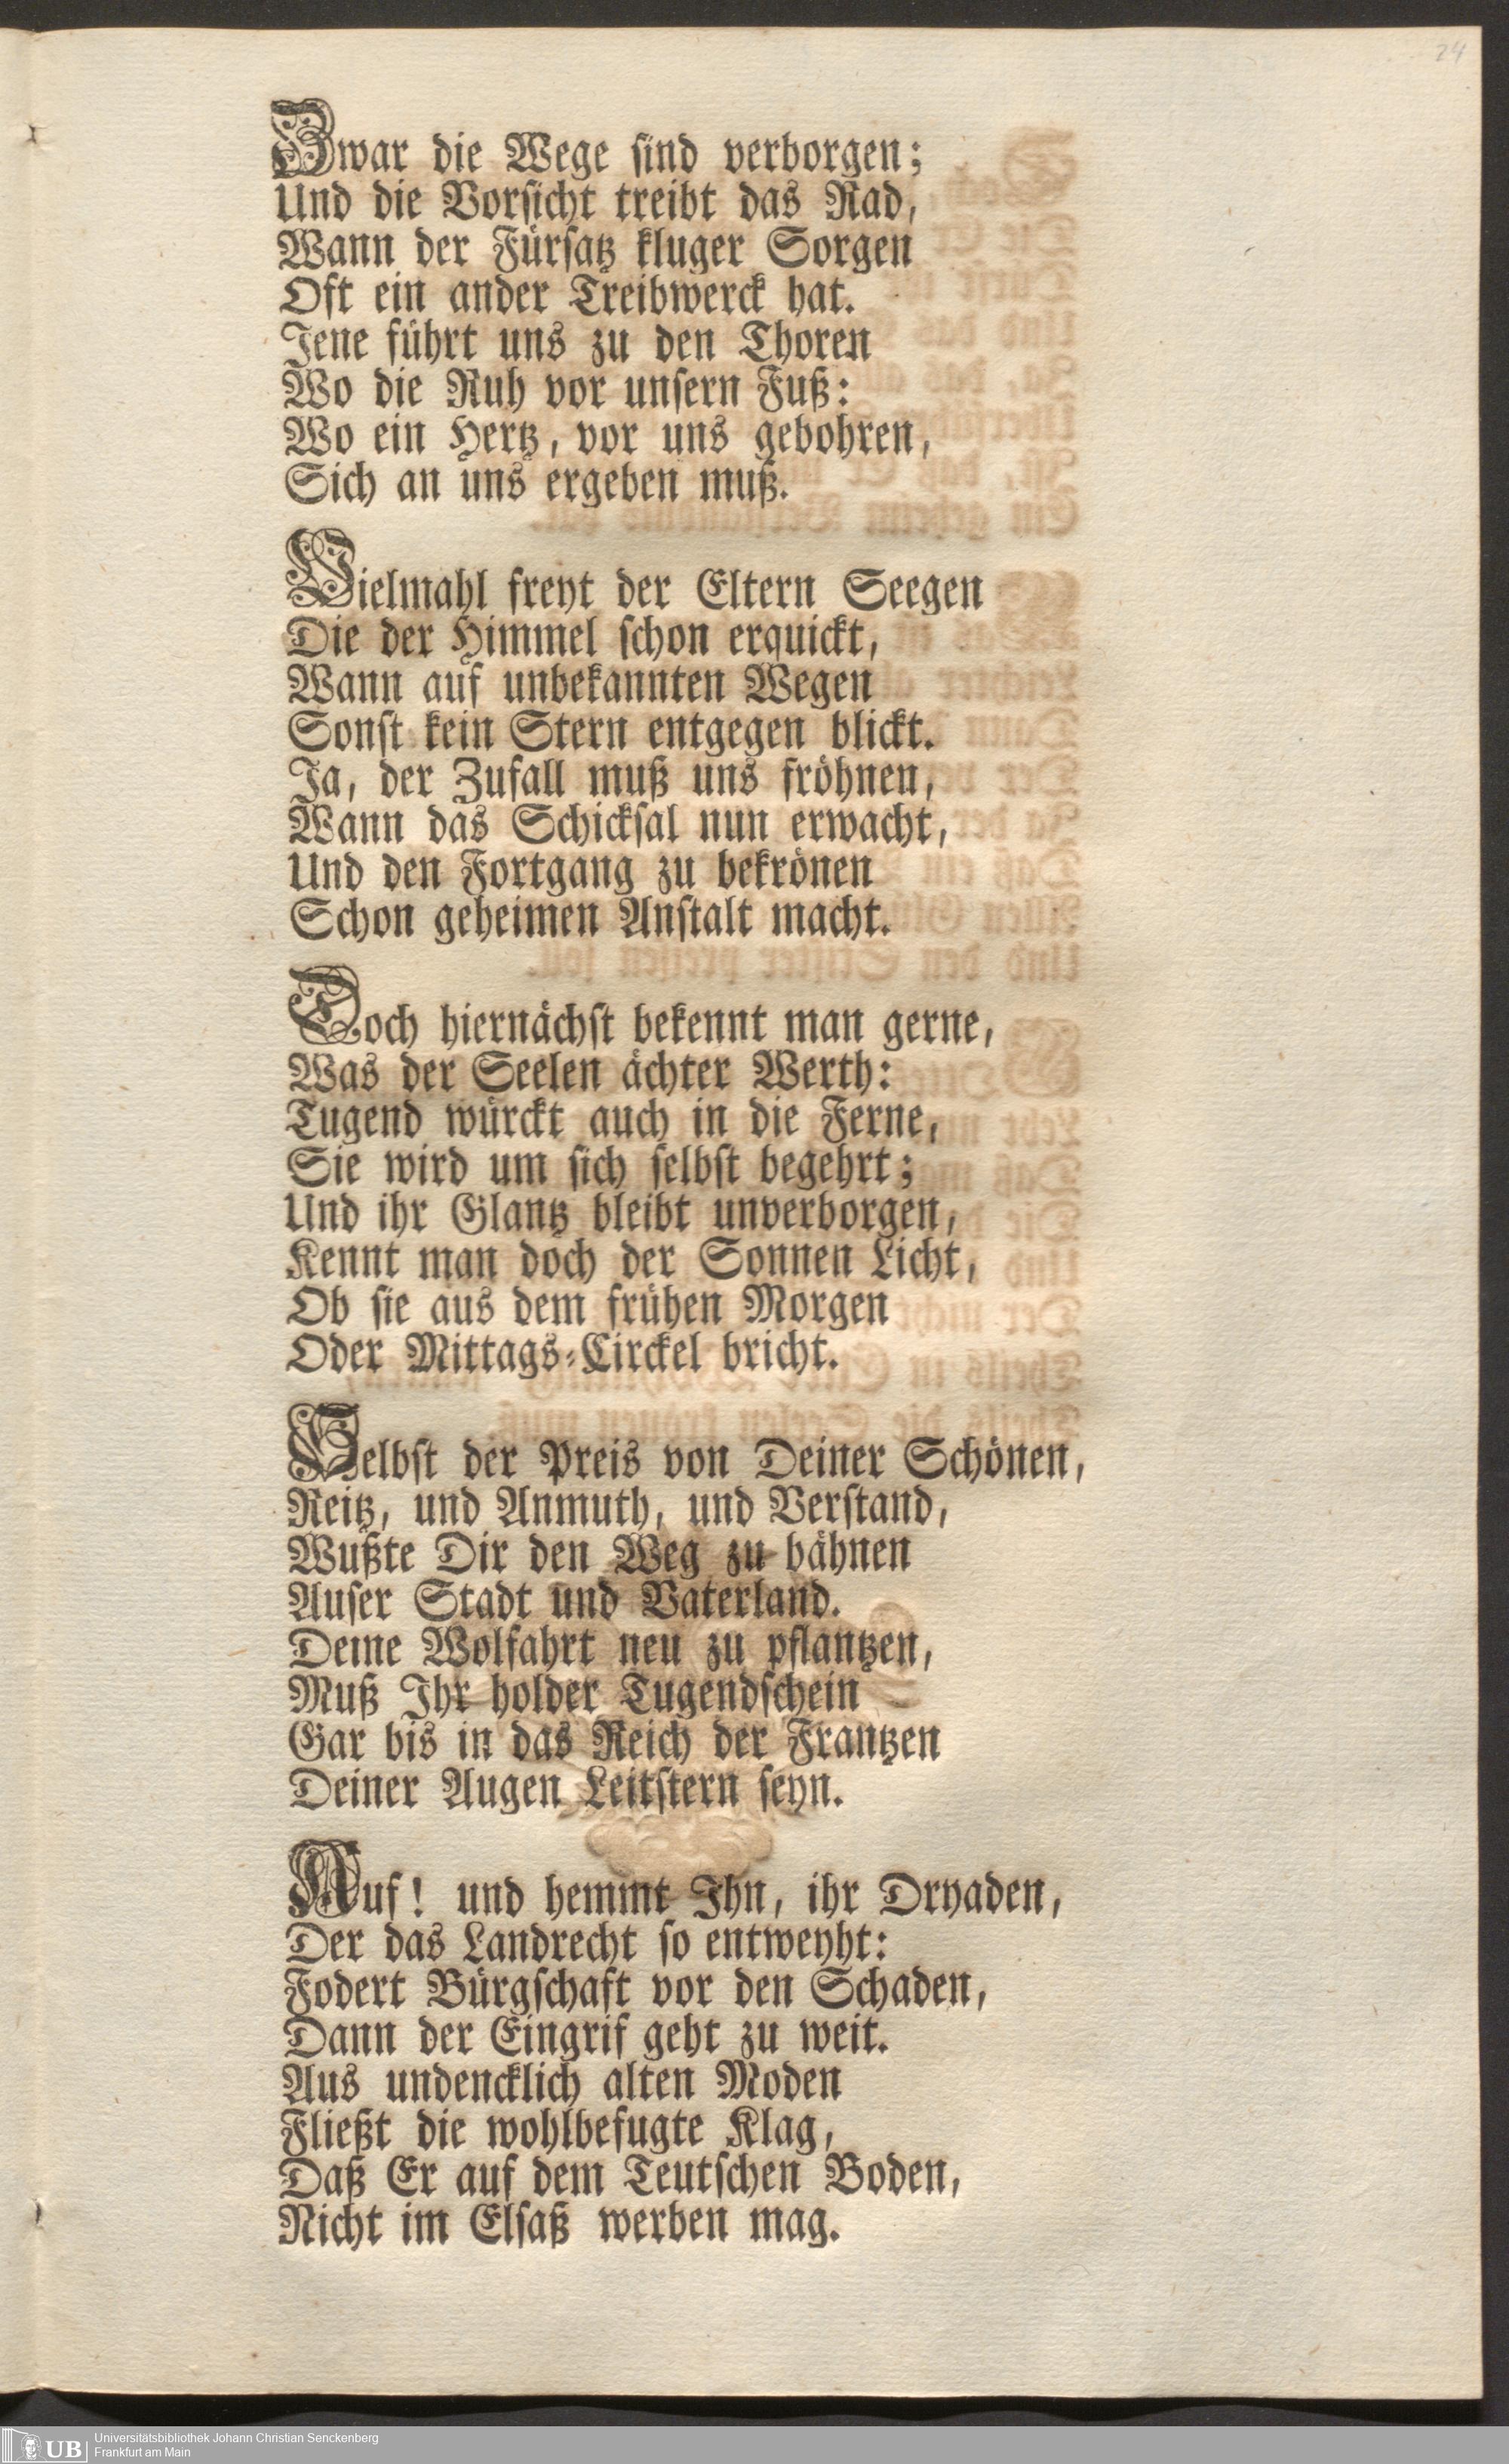 24
Zwar die Wege sind verborgen;
Und die Vorsicht treibt das Rad,
Wann der Fürsatz kluger Sorgen
Oft ein ander Treibwerck hat.
Jene führt uns zu den Thoren
Wo die Ruh vor unsern Fuß:
Wo ein Hertz, vor uns gebohren,
Sich an uns ergeben muß.
Vielmahl freyt der Eltern Seegen
Die der Himmel schon erquickt,
Wann auf unbekannten Wegen
Sonst kein Stern entgegen blickt.
Ja, der Zufall muß uns fröhnen,
Wann das Schicksal nun erwacht,
Und den Fortgang zu bekrönen
Schon geheimen Anstalt macht.
Doch hiernächst bekennt man gerne,
Was der Seelen ächter Werth:
Tugend würckt auch in die Ferne,
Sie wird um sich selbst begehrt;
Und ihr Glantz bleibt unverborgen,
Kennt man doch der Sonnen Licht,
Ob sie aus dem frühen Morgen
Oder Mittags-Circkel bricht.
Selbst der Preis von Deiner Schönen,
Reitz, und Anmuth, und Verstand,
Wußte Dir den Weg zu bähnen
Auser Stadt und Vaterland.
Deine Wolfahrt neu zu pflantzen,
Muß Ihr holder Tugendschein
Gar bis in das Reich der Frantzen
Deiner Augen Leitstern seyn.
Auf! und hemmt Ihn, ihr Dryaden,
Der das Landrecht so entweyht:
Fodert Bürgschaft vor den Schaden,
Dann der Eingrif geht zu weit.
Aus undencklich alten Moden
Fließt die wohlbefugte Klag,
Daß Er auf dem Teutschen Boden,
Nicht im Elsaß werben mag.
UB
Universitätsbibliothek Johann Christian Senckenberg
Frankfurt am Main